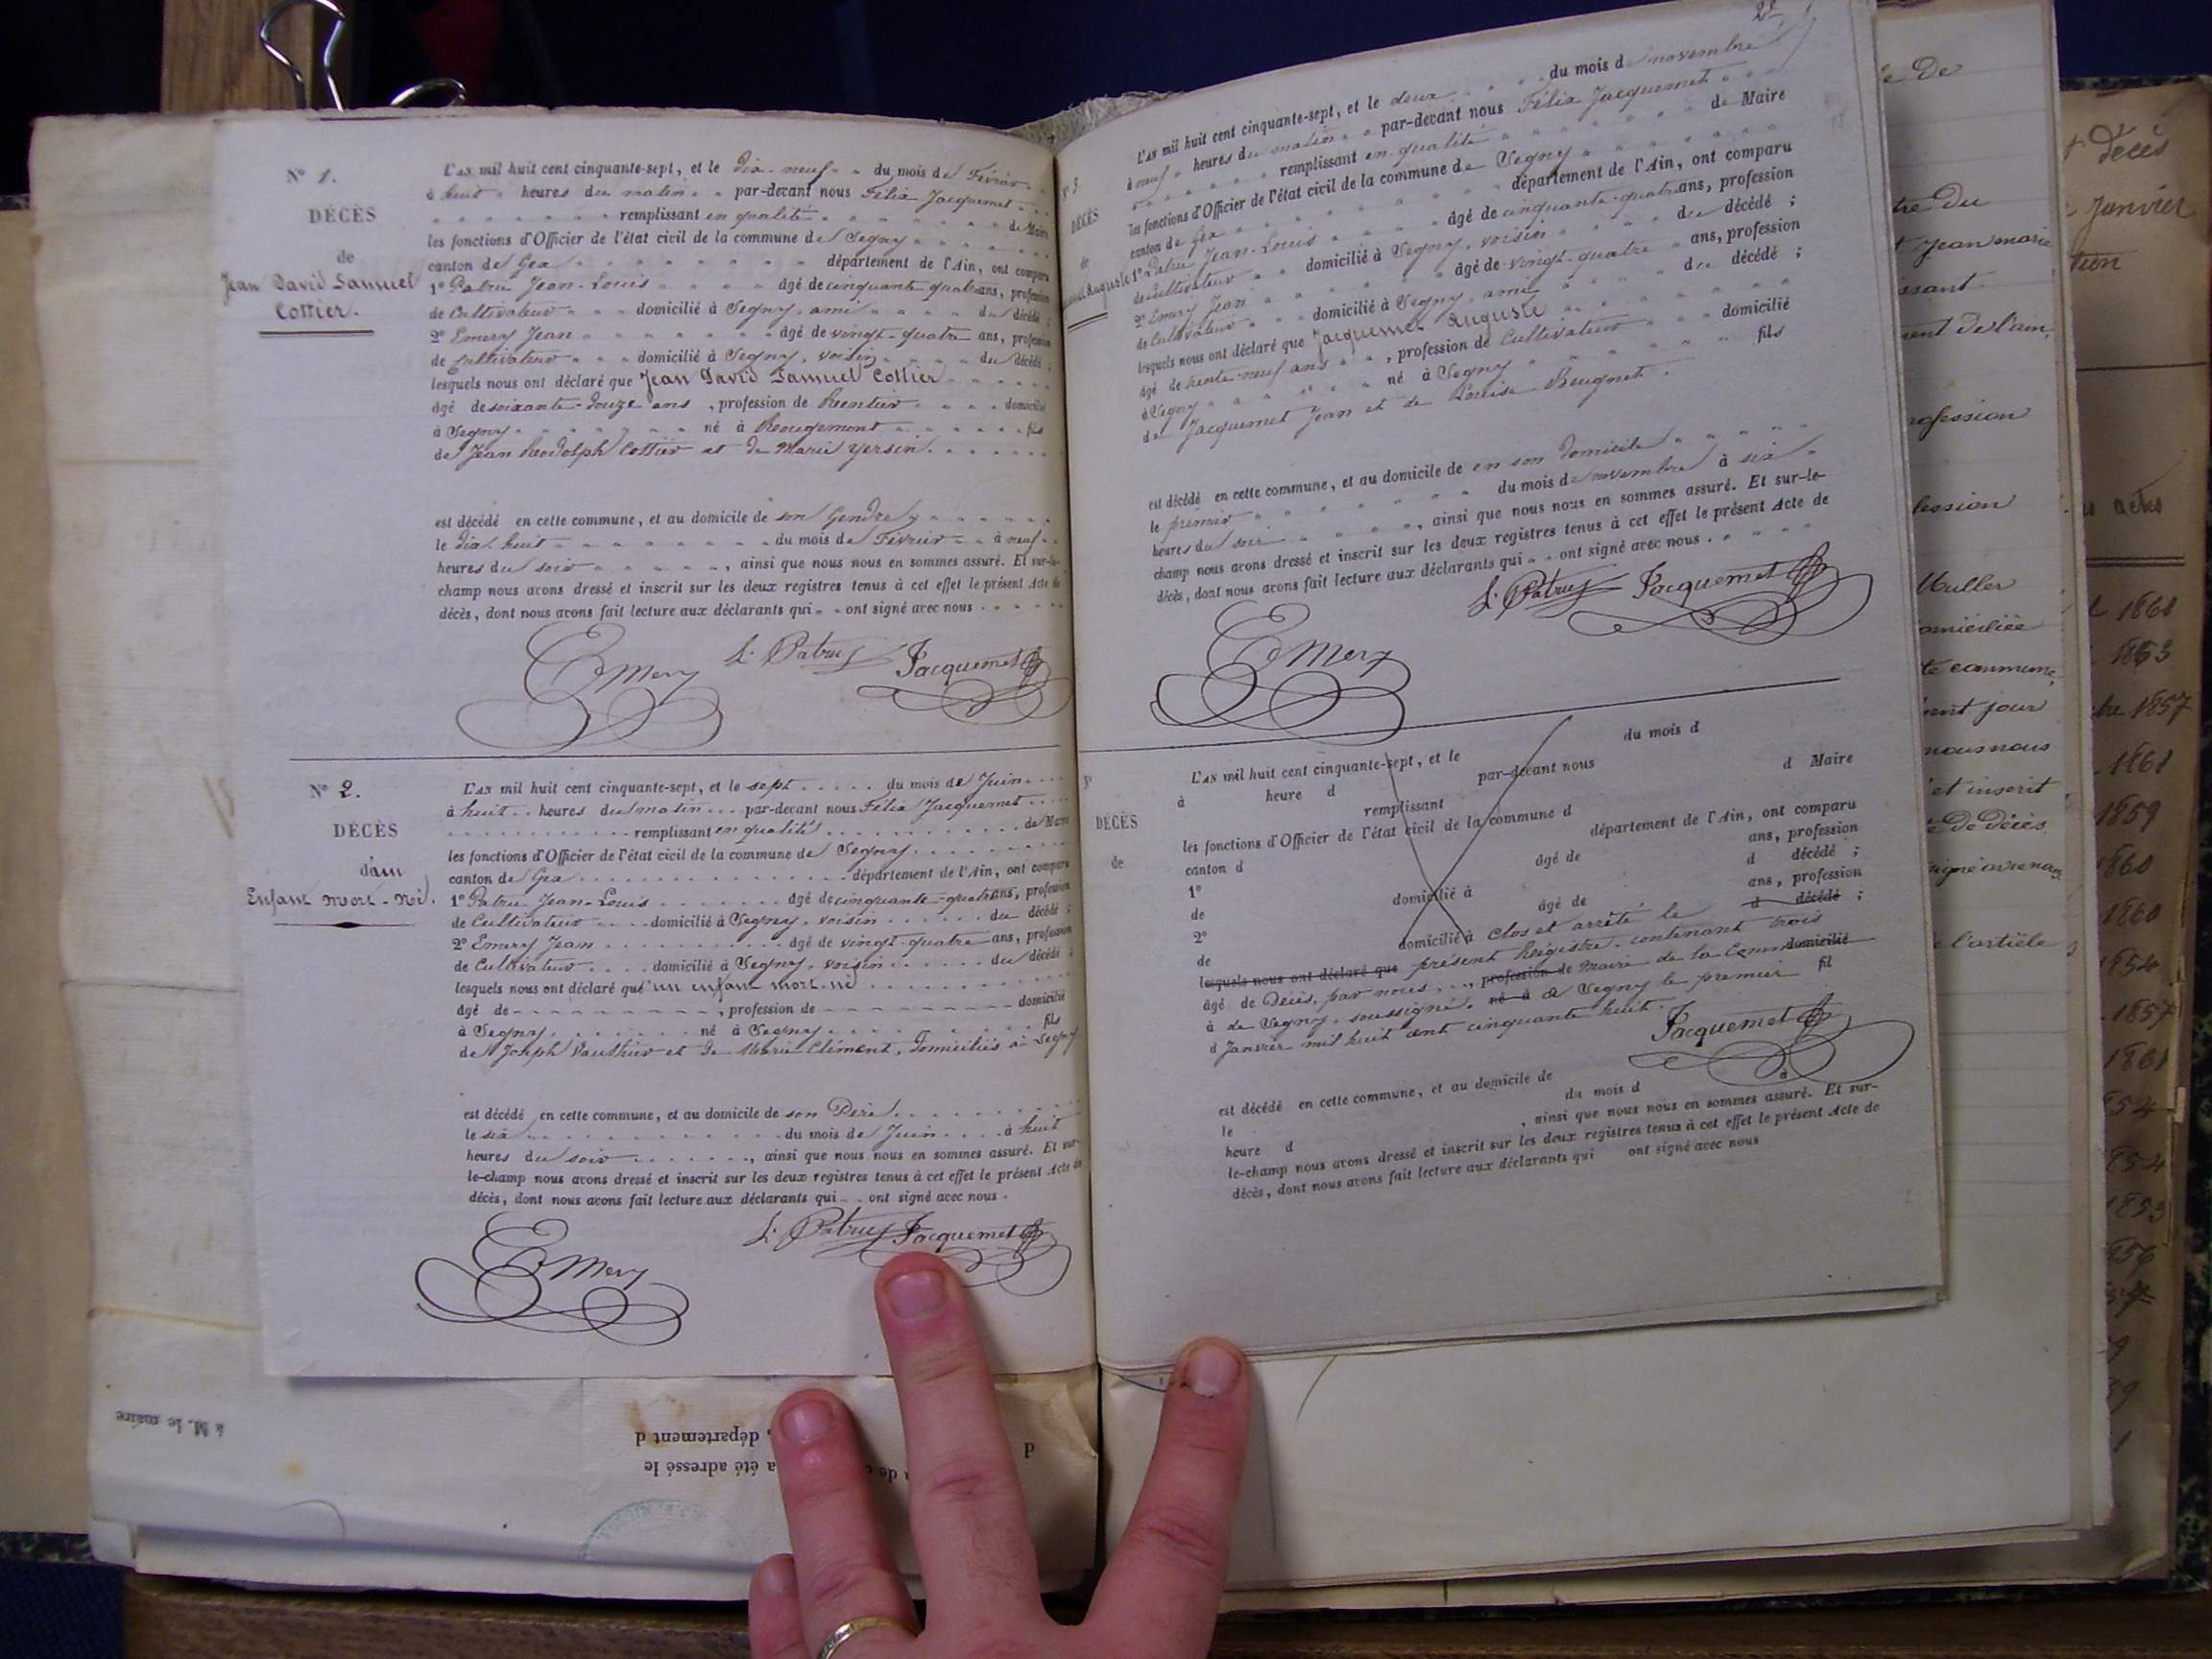 N° 1.
DÉCÈS
de
Jean David Samuel
Cottier.
L'AN mil huit cent cinquante-sept, et le dix-neuf du mois de Février
à huit heures du matin par-devant nous Félix Jacquemet
remplissant en qualité de Maire
les fonctions d'Officier de l'état civil de la commune de Segny
canton de Gex département de l'Ain, ont comparu
1° Patru Jean-Louis âgé de cinquante quatre ans, profession
de Cultivateur domicilié à Segny, ami du décédé ;
2° Emery Jean âgé de vingt-quatre ans, profession
de Cultivateur domicilié à Segny, voisin du décédé ;
lesquels nous ont déclaré que Jean David Samuel Cottier
âgé de soixante-douze ans , profession de Rentier domicilié
à Segny né à Rougemont fils
de Jean Rodolph Cottier et de Marie Yersin.
est décédé en cette commune, et au domicile de son Gendre
le dix huit du mois de Février à neuf
heures du soir , ainsi que nous nous en sommes assuré. Et sur-le-
champ nous avons dressé et inscrit sur les deux registres tenus à cet effet le présent Acte de
décès, dont nous avons fait lecture aux déclarants qui ont signé avec nous .
Emery L. Patru Jacquemet
N° 2.
DÉCÈS
d'un
Enfant mort-né.
L'AN mil huit cent cinquante-sept, et le sept du mois de Juin
à huit heures du matin par-devant nous Félix Jacquemet
remplissant en qualité de Maire
les fonctions d'Officier de l'état civil de la commune de Segny
canton de Gex département de l'Ain, ont comparu
1° Patru Jean-Louis âgé de cinquante-quatre ans, profession
de Cultivateur domicilié à Segny, voisin du décédé ;
2° Emery Jean âgé de vingt-quatre ans, profession
de Cultivateur domicilié à Segny, voisin du décédé ;
lesquels nous ont déclaré que un enfant mort-né
âgé de , profession de domicilié
à Segny né à Segny fils
de Joseph Vauthier et de Marie Clément, domiciliés à Segny
est décédé en cette commune, et au domicile de son Père
le six du mois de Juin à huit
heures du soir , ainsi que nous nous en sommes assuré. Et sur-
le-champ nous avons dressé et inscrit sur les deux registres tenus à cet effet le présent Acte de
décès, dont nous avons fait lecture aux déclarants qui ont signé avec nous .
Emery L. Patru Jacquemet
à M. le maire
, département d
a été adressé le
N° 3
DÉCÈS
de
Auguste
L'AN mil huit cent cinquante-sept, et le deux du mois d novembre
à neuf heures du matin par-devant nous Félix Jacquemet
remplissant en qualité de Maire
les fonctions d'Officier de l'état civil de la commune de Segny
canton de Gex département de l'Ain, ont comparu
1° Patru Jean-Louis âgé de cinquante-quatre ans, profession
de cultivateur domicilié à Segny, voisin du décédé ;
2° Emery Jean âgé de vingt-quatre ans, profession
de Cultivateur domicilié à Segny, ami du décédé ;
lesquels nous ont déclaré que Jacquemet Auguste
âgé de trente-neuf ans , profession de Cultivateur domicilié
à Segny né à Segny fils
de Jacquemet Jean et de Louise Beugnet.
est décédé en cette commune, et au domicile de en son domicile
le premier du mois de novembre à six
heures du soir , ainsi que nous nous en sommes assuré. Et sur-le-
champ nous avons dressé et inscrit sur les deux registres tenus à cet effet le présent Acte de
décès, dont nous avons fait lecture aux déclarants qui ont signé avec nous .
Emery L. Patru Jacquemet
DÉCÈS
de
L'AN mil huit cent cinquante-sept, et le du mois d
à heure d par-devant nous
remplissant d Maire
les fonctions d'Officier de l'état civil de la commune d
canton d département de l'Ain, ont comparu
1° âgé de ans, profession
de domicilié à d décédé ;
2° âgé de ans, profession
de domicilié à clos et arrêté le d décédé ;
lesquels nous ont déclaré que présent Régistre, contenant trois
âgé de Décès, par nous , profession de Maire de la Commune domicilié
à de Segny, soussigné, né à à Segny le premier fil
d Janvier mil huit cent cinquante huit.
Jacquemet
est décédé en cette commune, et au domicile de
le du mois d à
heure d , ainsi que nous nous en sommes assuré. Et sur-
le-champ nous avons dressé et inscrit sur les deux registres tenus à cet effet le présent Acte de
décès, dont nous avons fait lecture aux déclarants qui ont signé avec nous
De
Jean marie
de l'ain,
Muller
domiciliée
commune,
jour
nous nous
et inscrit
de Décès
l'article
décès
Janvier
actes
1861
1863
1857
1861
1859
1860
1860
1854
1857
1861
1853